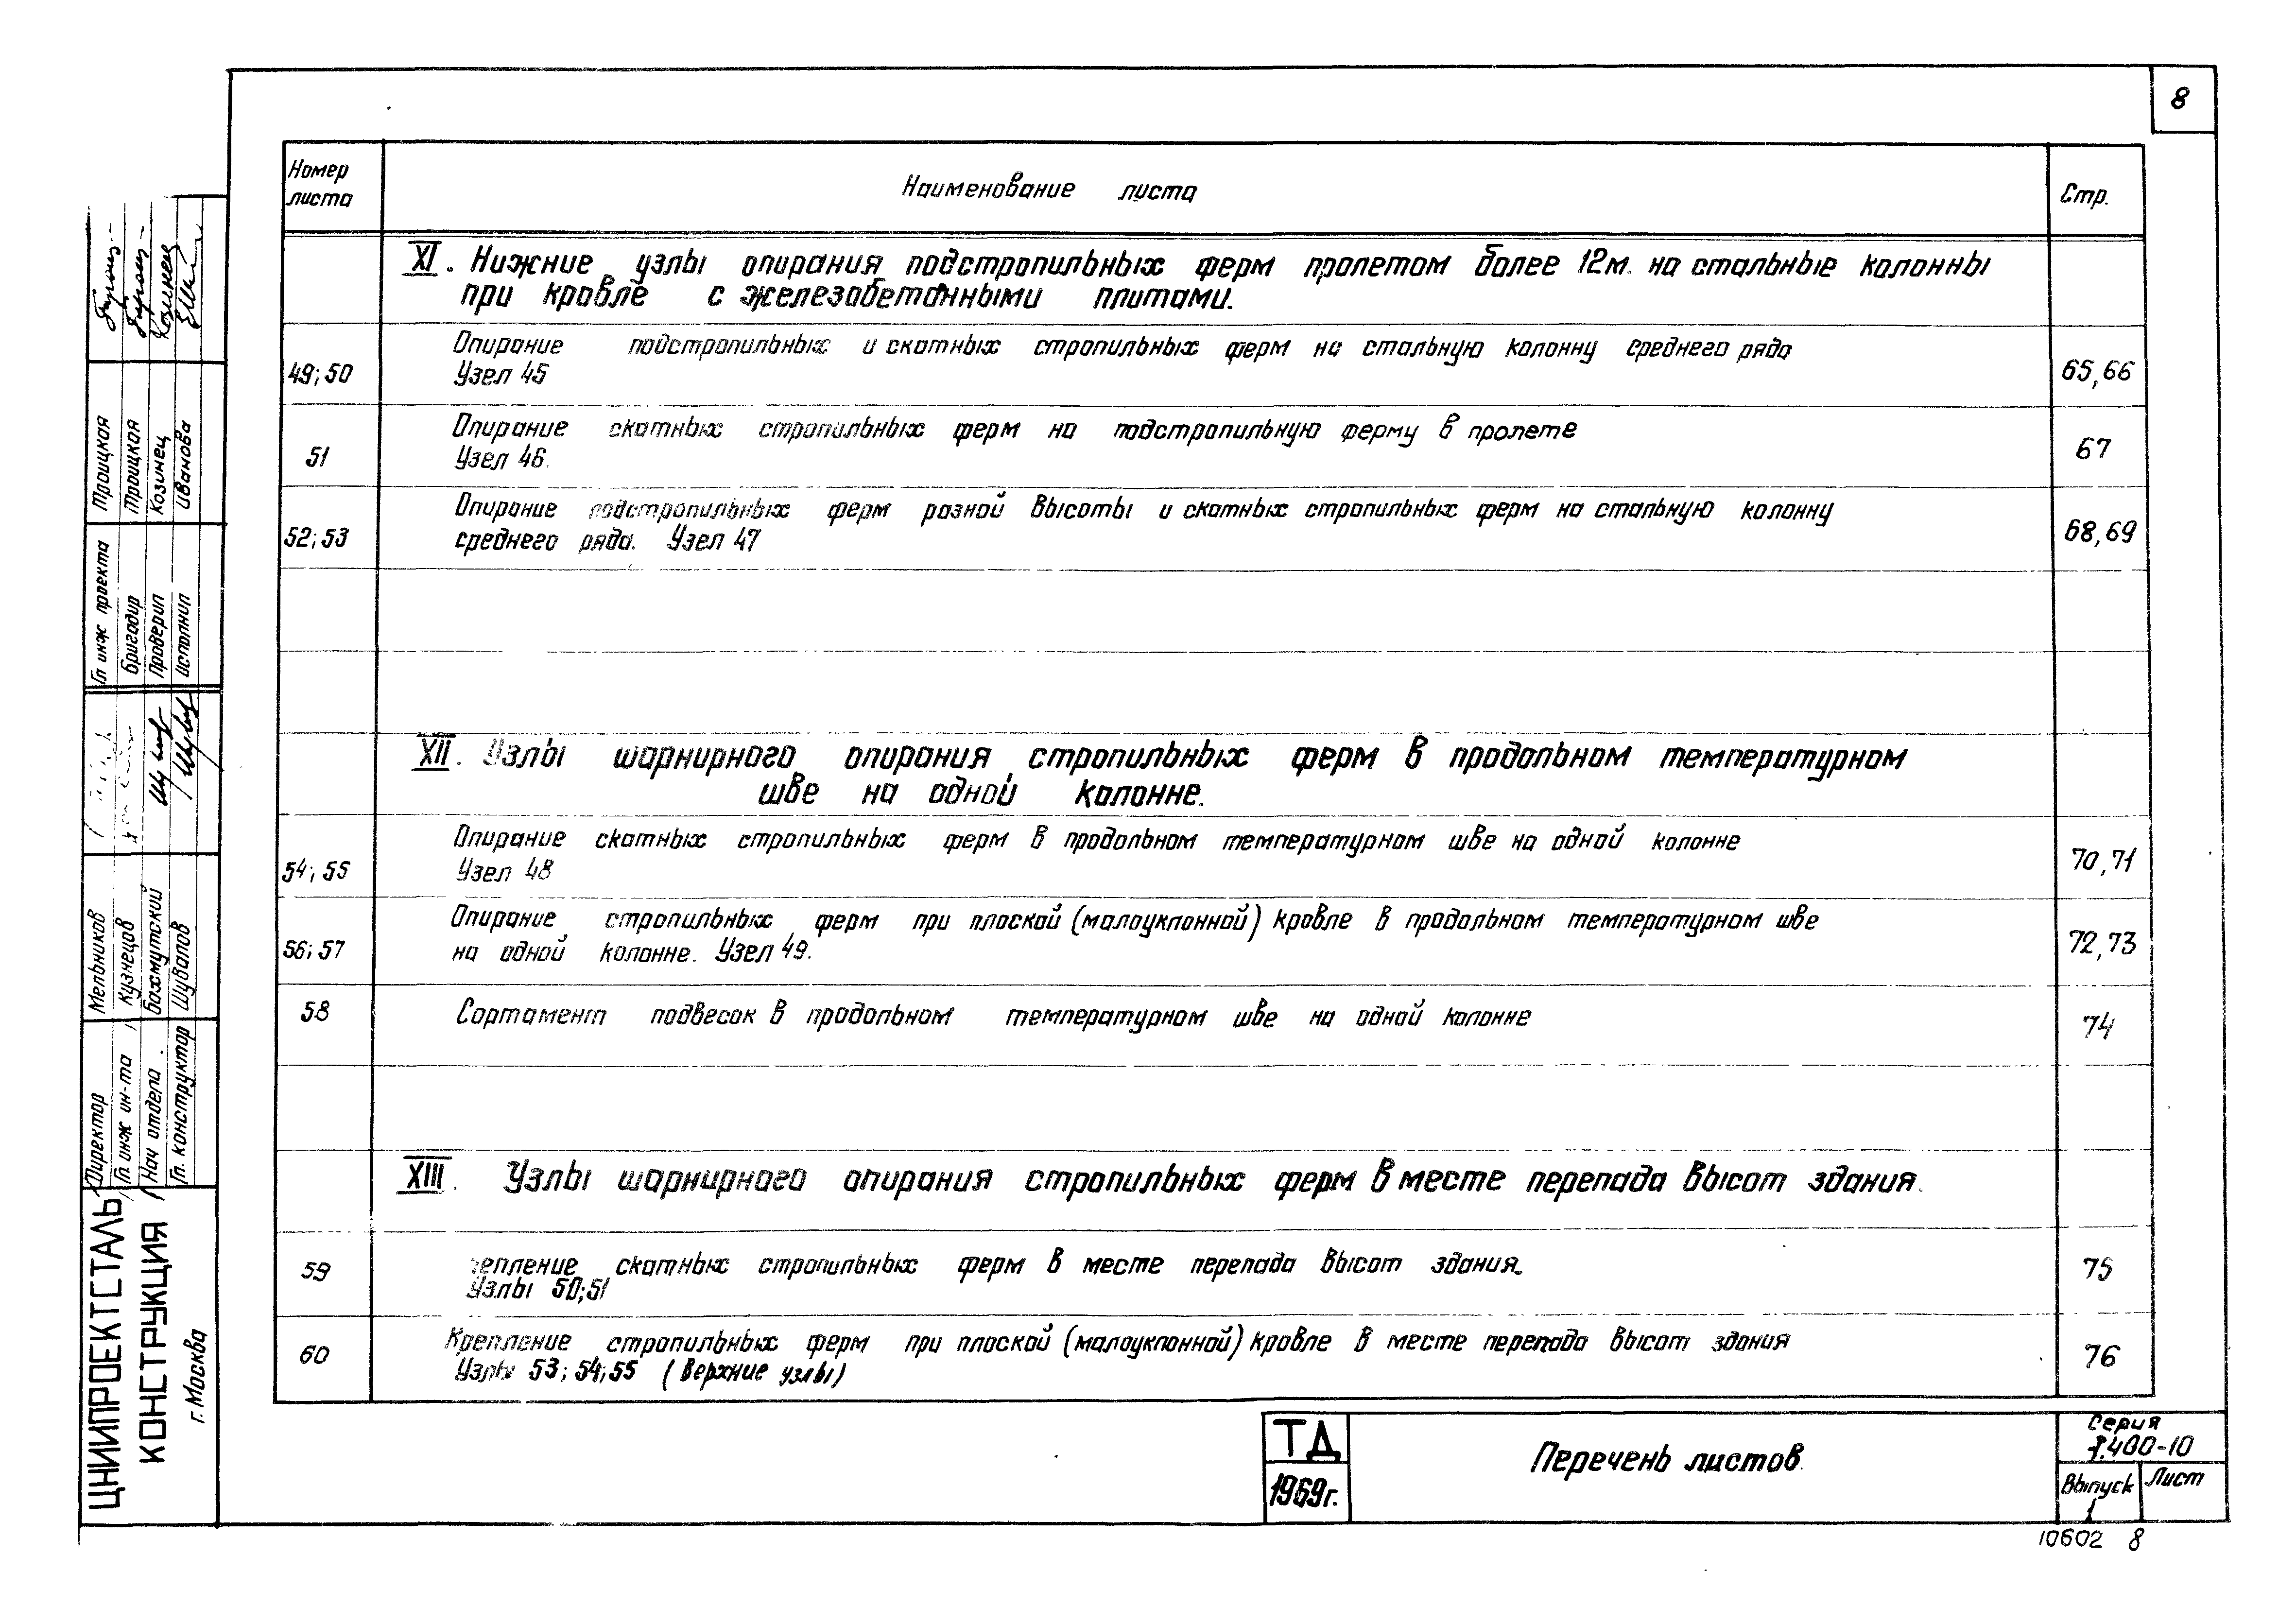 8
Номер листа
Наименование листа
Стр.
XI. Нижние узлы опирания подстропильных ферм пролетом более 12м. на стальные колонны
при кровле с железобетонными плитами.
Опирание подстропильных и скатных стропильных ферм на стальную колонну среднего ряда
49; 50 Узел 45 65,66
Опирание скатных стропильных ферм на подстропильную ферму в пролете
51 Узел 46. 67
Опирание подстропильных ферм разной высоты и скатных стропильных ферм на стальную колонну
52; 53 среднего ряда. Узел 47 68,69
XII. Узлы шарнирного опирания стропильных ферм в продольном температурном
шве на одной колонне.
Опирание скатных стропильных ферм в продольном температурном шве на одной колонне
54; 55 Узел 48 70,71
Опирание стропильных ферм при плоской (малоуклонной) кровле в продольном температурном шве
56; 57 на одной колонне. Узел 49. 72,73
58 Сортамент подвесок в продольном температурном шве на одной колонне 74
XIII. Узлы шарнирного опирания стропильных ферм в месте перепада высот здания.
59 епление скатных стропильных ферм в месте перепада высот здания. 75
Узлы 50;51
Крепление стропильных ферм при плоской (малоуклонной) кровле в месте перепада высот здания
60 Узлы 53; 54; 55 (Верхние узлы) 76
ТД
1969г.
Перечень листов.
Серия
1.400-10
Выпуск
1
Лист
10602 8
ЦНИИПРОЕКТСТАЛЬ
КОНСТРУКЦИЯ
г. Москва
Директор Мельников
Гл. инж ин-та Кузнецов
Нач отдела Бахмутский
Гл. конструктор Шувалов
Гл инж проекта Троицкая
Бригадир Троицкая
Проверил Козинец Козинец
Исполнил Иванова